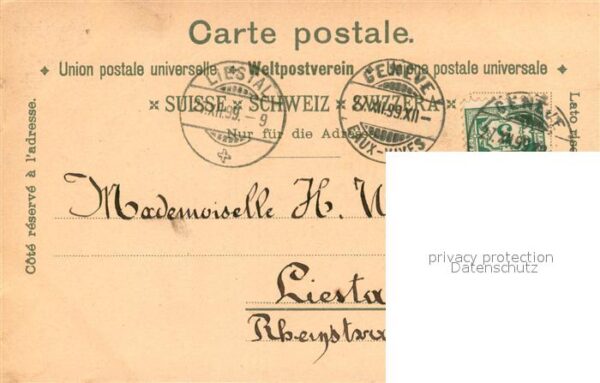 Carte postale.
Union postale universelle Weltpostverein postale universale
SUISSE SCHWEIZ SVIZZERA
Nur für die
Côté réservé à l'adresse.
LIESTAL
XII.99.-9
GENÈVE
XII.99.XII-
EAUX-VIVES
GENÈVE
5
Lato
Mademoiselle H.
Liesta
privacy protection
Datenschutz